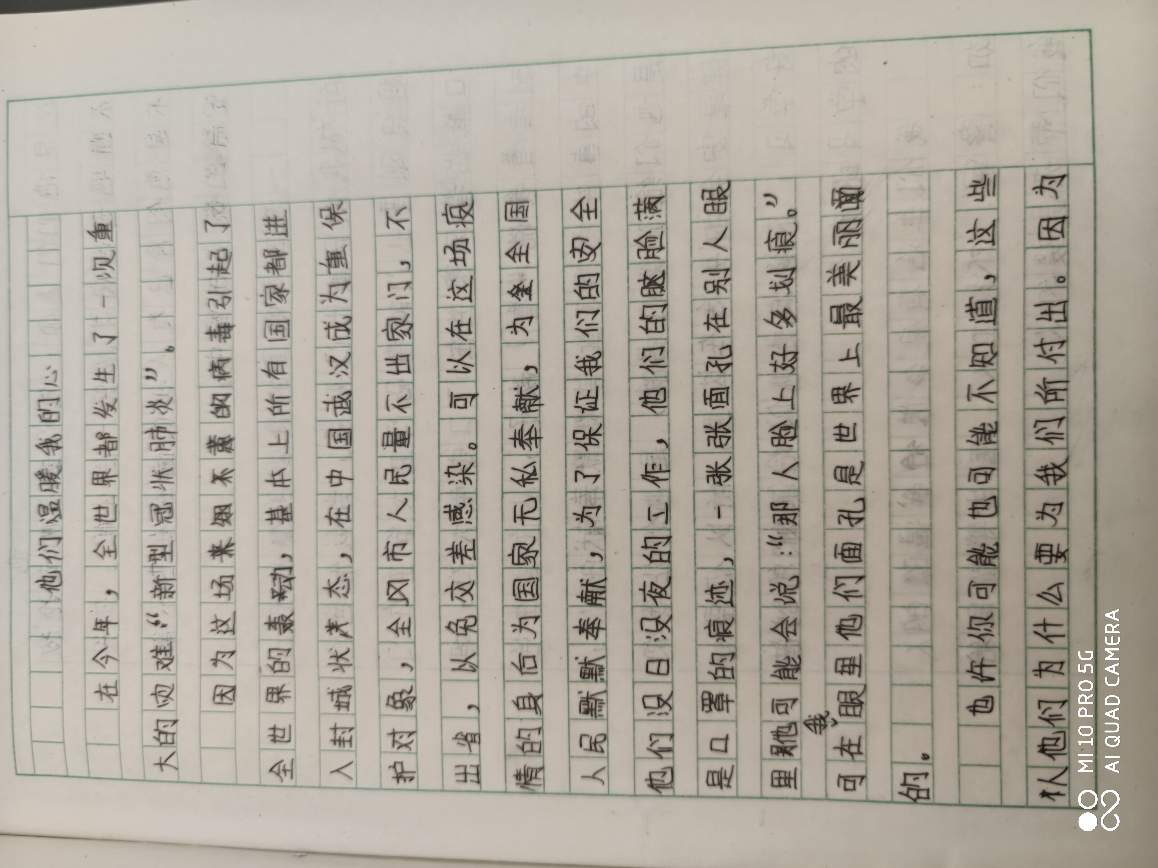 他们温暖我的心
在今年，全世界都发生了一次重
大的灾难“新型冠状肺炎”。
因为这场来烟不薰的病毒引起了
全世界的轰动，基本上所有国家都进
入封城状态，在中国武汉成为重保
护对象，全风市人民量不出家门，不
出省，以免交差感染。可以在这场疫
情的身后为国家无私奉献，为全国
人民默默奉献，为了保证我们的安全
他们没日没夜的工作，他们的脸满
是口罩的痕迹，一张张面孔在别人眼
里他可能会说：“那人脸上好多划痕。”
可在我眼里他们面孔是世界上最美丽面
的。
也许你可能也可能不知道，这些
人他们为什么要为我们所付出。因为
MI 10 PRO 5G
AI QUAD CAMERA